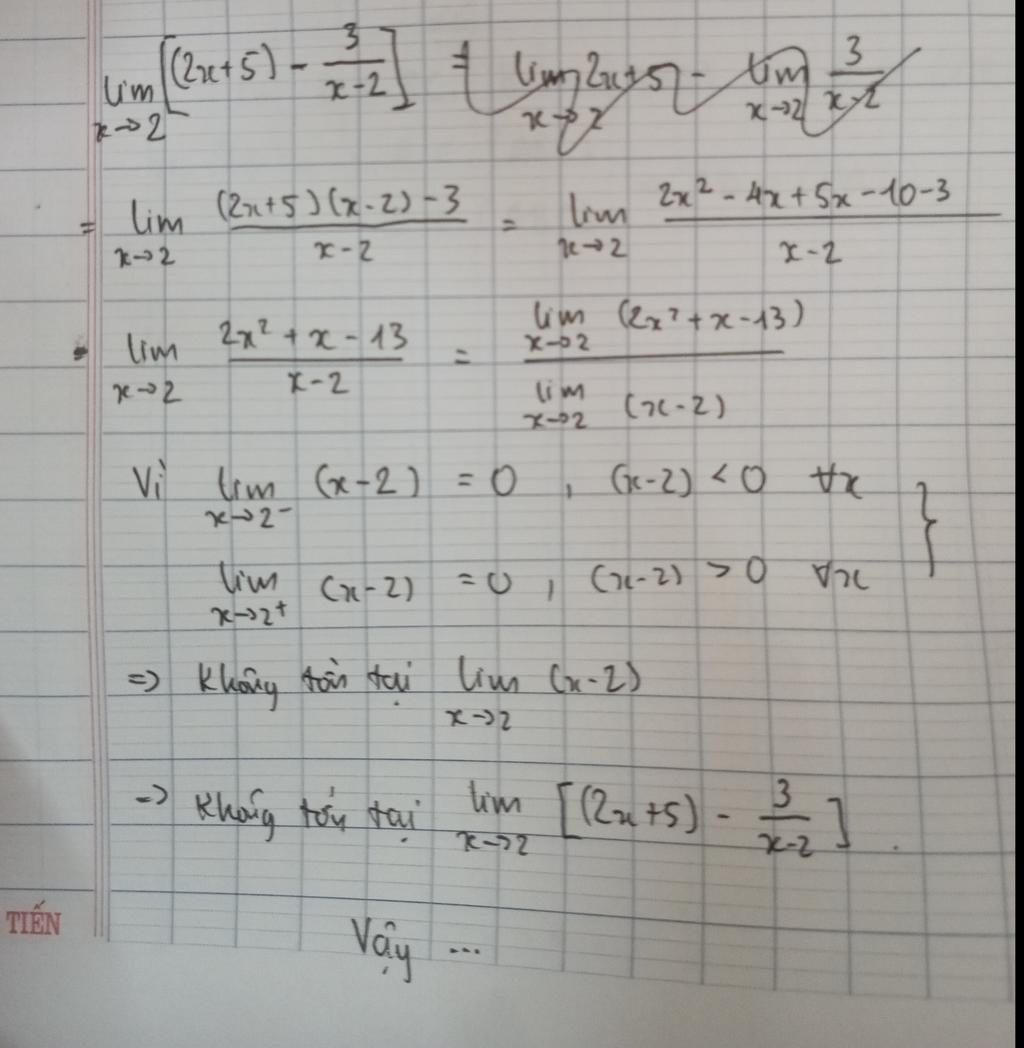 lim x→2⁻ [(2x+5) - 3/(x-2)] = lim x→2 2x+5 - lim x→2 3/(x-2)
= lim x→2 ((2x+5)(x-2)-3)/(x-2) = lim x→2 (2x² - 4x + 5x - 10 - 3)/(x-2)
lim x→2 (2x² + x - 13)/(x-2) = (lim x→2 (2x² + x - 13))/(lim x→2 (x-2))
Vì lim x→2⁻ (x-2) = 0 , (x-2) < 0 ∀x }
lim x→2⁺ (x-2) = 0 , (x-2) > 0 ∀x
=> Không tồn tại lim x→2 (x-2)
=> Không tồn tại lim x→2 [(2x+5) - 3/(x-2)] .
TIẾN
Vậy ...